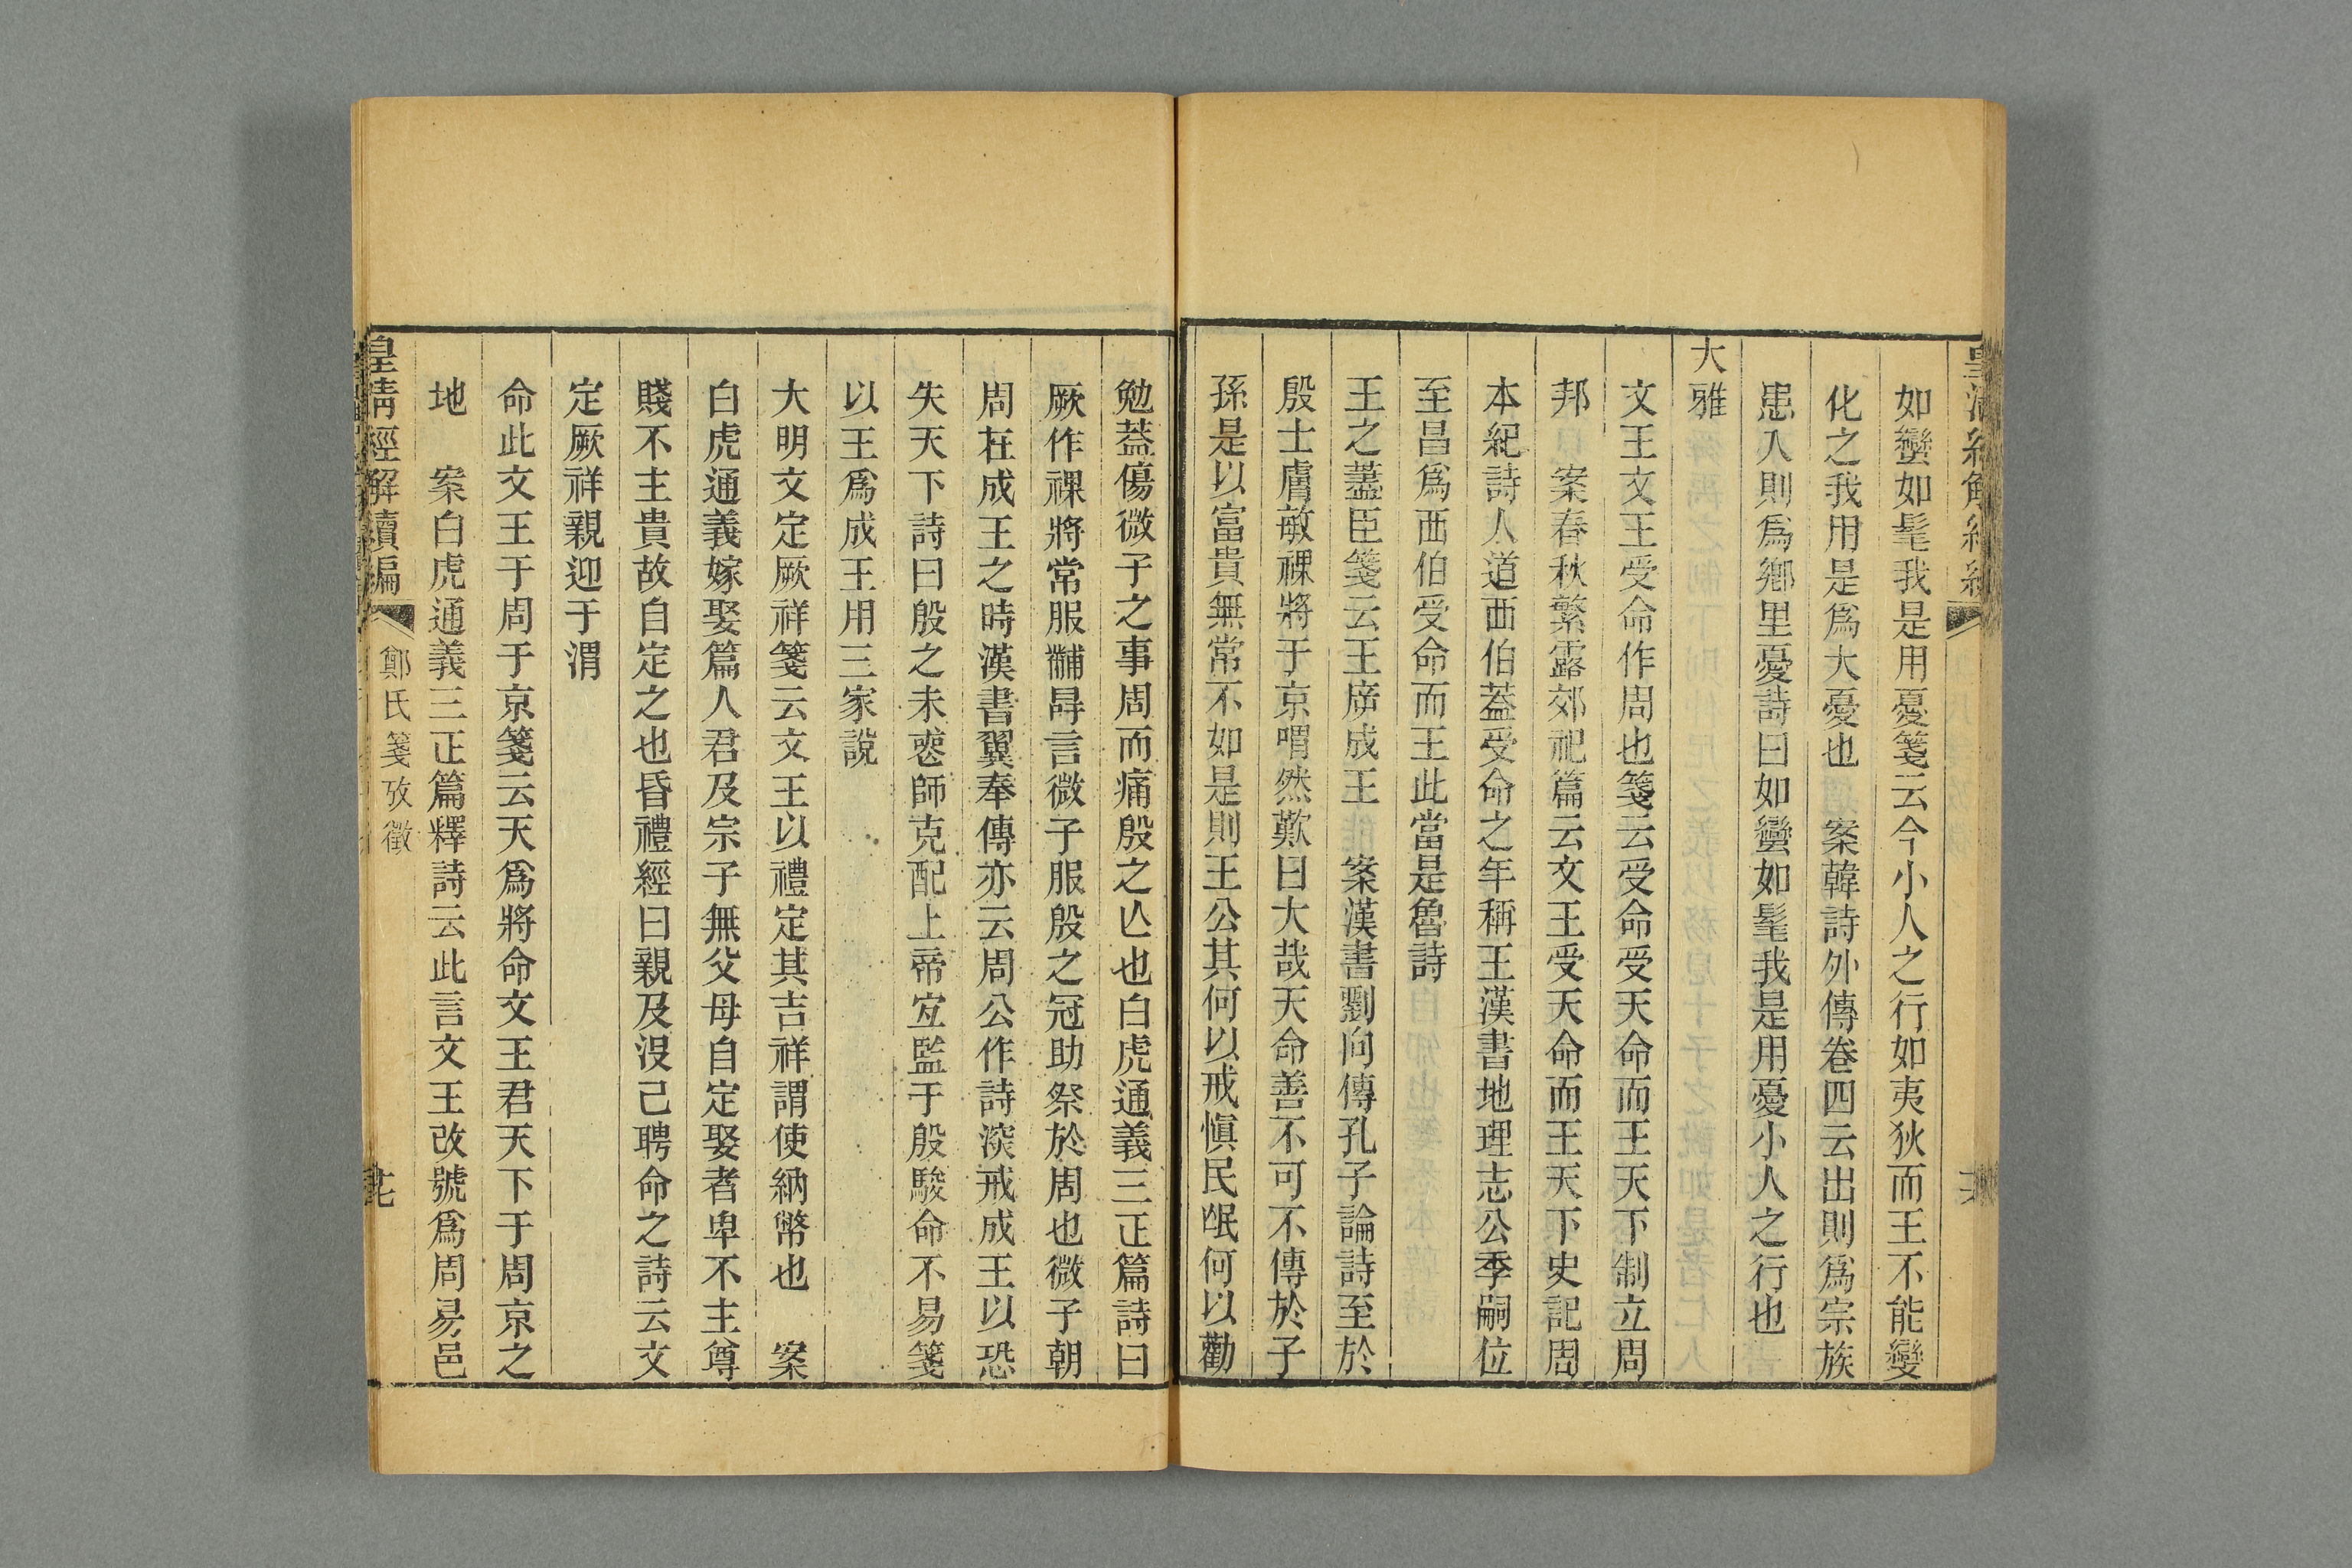 如蠻如髦我是用憂箋云今小人之行如夷狄而王不能變
化之我用是爲大憂也　案韓詩外傳卷四云出則爲宗族
患入則爲鄉里憂詩曰如蠻如髦我是用憂小人之行也
大雅
文王文王受命作周也箋云受命受天命而王天下制立周
邦　案春秋繁露郊祀篇云文王受天命而王天下史記周
本紀詩人道西伯蓋受命之年稱王漢書地理志公季嗣位
至昌爲西伯受命而王此當是魯詩
王之藎臣箋云王斥成王　案漢書劉向傳孔子論詩至於
殷士膚敏祼將于京喟然歎曰大哉天命善不可不傳於子
孫是以富貴無常不如是則王公其何以戒愼民氓何以勸
勉蓋傷微子之事周而痛殷之亾也白虎通義三正篇詩曰
厥作祼將常服黼冔言微子服殷之冠助祭於周也微子朝
周在成王之時漢書翼奉傳亦云周公作詩深戒成王以恐
失天下詩曰殷之未喪師克配上帝宜監于殷駿命不易箋
以王爲成王用三家說
大明文定厥祥箋云文王以禮定其吉祥謂使納幣也　案
白虎通義嫁娶篇人君及宗子無父母自定娶者卑不主尊
賤不主貴故自定之也昏禮經曰親及沒己聘命之詩云文
定厥祥親迎于渭
命此文王于周于京箋云天爲將命文王君天下于周京之
地　案白虎通義三正篇釋詩云此言文王改號爲周易邑
皇清經解續編
鄭氏箋攷徵